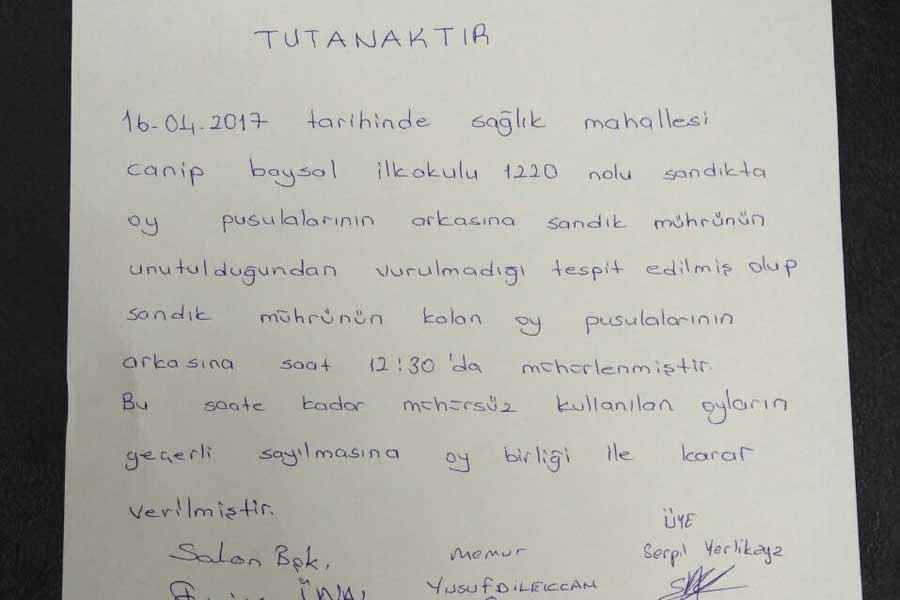 TUTANAKTIR
16-04-2017 tarihinde sağlık mahallesi
canip baysal ilkokulu 1220 nolu sandıkta
oy pusulalarının arkasına sandık mührünün
unutulduğundan vurulmadığı tespit edilmiş olup
sandık mührünün kalan oy pusulalarının
arkasına saat 12:30'da mühürlenmiştir.
Bu saate kadar mühürsüz kullanılan oyların
geçerli sayılmasına oy birliği ile karar
verilmiştir.
ÜYE
Salon Bşk. Memur Serpil Yerlikaya
YUSUF